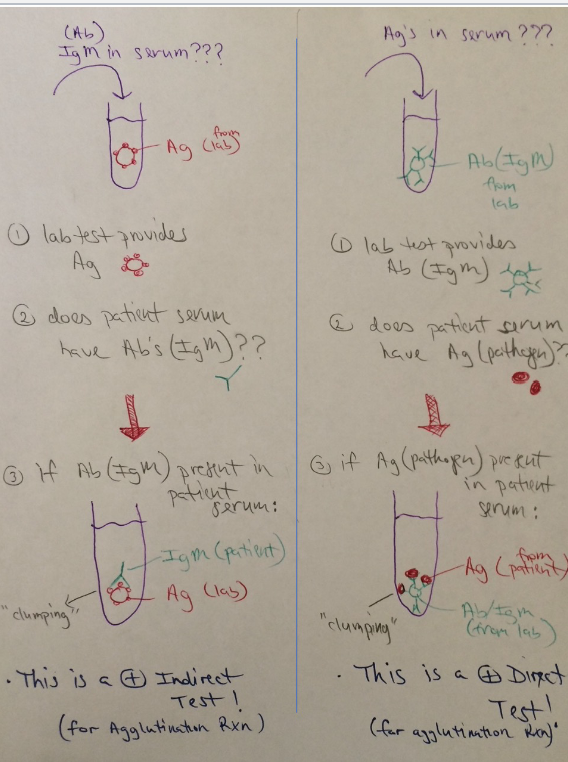 (Ab)
IgM in serum???
Ag (from lab)
① lab test provides
Ag
② does patient serum
have Ab's (IgM)??
③ if Ab (IgM) present in
patient
serum:
IgM (patient)
Ag (lab)
"clumping"
· This is a ⊕ Indirect
Test!
(for Agglutination Rxn)
Ag's in serum???
Ab (IgM)
from
lab
① lab test provides
Ab (IgM)
② does patient serum
have Ag (pathogen)??
③ if Ag (pathogen) present
in patient
serum:
Ag (from patient)
Ab/IgM
(from lab)
"clumping"
· This is a ⊕ Direct
Test!
(for agglutination Rxn)